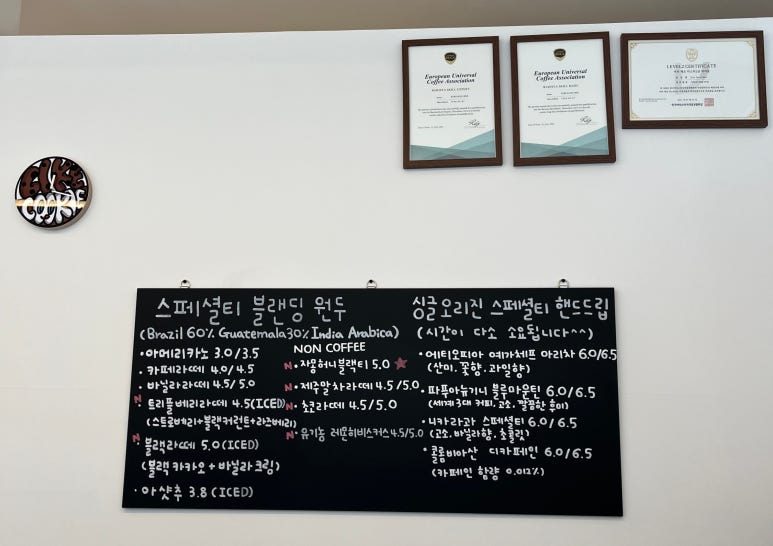 European Universal
Coffee Association
BARISTA SKILL EXPERT
European Universal
Coffee Association
BARISTA SKILL BASIC
LEVEL2 CERTIFICATE
COOKIE
스페셜티 블랜딩 원두
(Brazil 60% Guatemala30% India Arabica)
•아메리카노 3.0/3.5
• 카페라떼 4.0/4.5
• 바닐라라떼 4.5/5.0
N • 트리플베리라떼 4.5(ICED)
(스트로베리+블랙커런트+라즈베리)
N • 블랙라떼 5.0(ICED)
(블랙 카카오 + 바닐라크림)
• 아샷추 3.8(ICED)
NON COFFEE
N • 자몽허니블랙티 5.0 ★
N • 제주말차라떼 4.5/5.0
N • 쵸코라떼 4.5/5.0
N • 유기농 레몬히비스커스4.5/5.0
싱글오리진 스페셜티 핸드드립
(시간이 다소 소요됩니다^^)
• 에티오피아 예가체프 아리차 6.0/6.5
(산미, 꽃향, 과일향)
• 파푸아뉴기니 블루마운틴 6.0/6.5
(세계3대 커피, 고소, 깔끔한 풍미)
• 니카라과 스페셜티 6.0/6.5
(고소, 바닐라향, 초콜릿)
• 콜롬비아산 디카페인 6.0/6.5
(카페인 함량 0.012%)